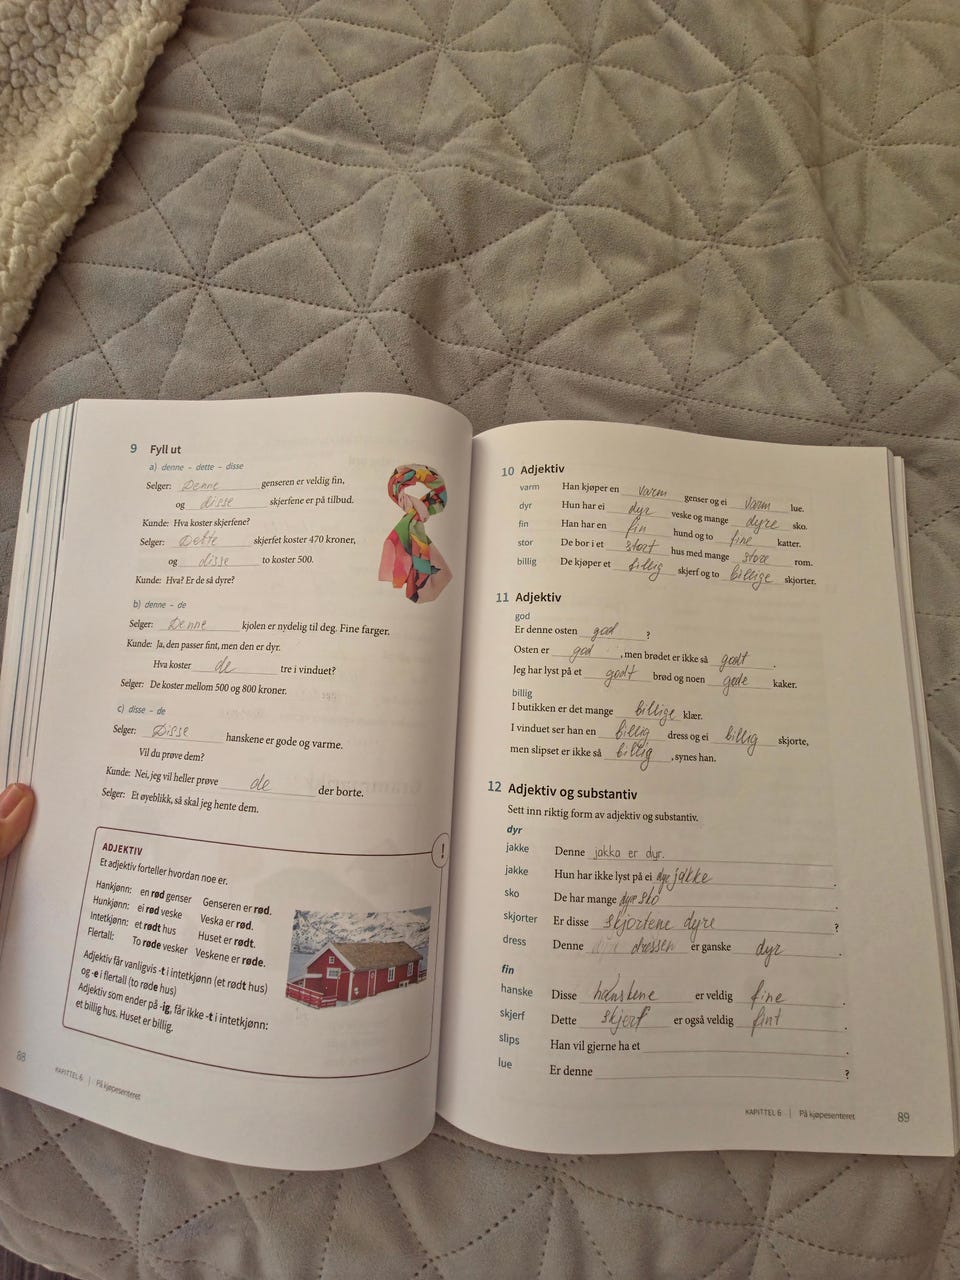 9 Fyll ut
a) denne - dette - disse
Selger: Denne genseren er veldig fin,
og disse skjerfene er på tilbud.
Kunde: Hva koster skjerfene?
Selger: Dette skjerfet koster 470 kroner,
og disse to koster 500.
Kunde: Hva? Er de så dyre?
b) denne - de
Selger: Denne kjolen er nydelig til deg. Fine farger.
Kunde: Ja, den passer fint, men den er dyr.
Hva koster de tre i vinduet?
Selger: De koster mellom 500 og 800 kroner.
c) disse - de
Selger: Disse hanskene er gode og varme.
Vil du prøve dem?
Kunde: Nei, jeg vil heller prøve de der borte.
Selger: Et øyeblikk, så skal jeg hente dem.
!
ADJEKTIV
Et adjektiv forteller hvordan noe er.
Hankjønn: en rød genser Genseren er rød.
Hunkjønn: ei rød veske Veska er rød.
Intetkjønn: et rødt hus Huset er rødt.
Flertall: To røde vesker Veskene er røde.
Adjektiv får vanligvis -t i intetkjønn (et rødt hus)
og -e i flertall (to røde hus)
Adjektiv som ender på -ig, får ikke -t i intetkjønn:
et billig hus. Huset er billig.
88
KAPITTEL 6 | På kjøpesenteret
10 Adjektiv
varm Han kjøper en varm genser og ei varm lue.
dyr Hun har ei dyr veske og mange dyre sko.
fin Han har en fin hund og to fine katter.
stor De bor i et stort hus med mange store rom.
billig De kjøper et billig skjerf og to billige skjorter.
11 Adjektiv
god
Er denne osten god ?
Osten er god , men brødet er ikke så godt .
Jeg har lyst på et godt brød og noen gode kaker.
billig
I butikken er det mange billige klær.
I vinduet ser han en billig dress og ei billig skjorte,
men slipset er ikke så billig , synes han.
12 Adjektiv og substantiv
Sett inn riktig form av adjektiv og substantiv.
dyr
jakke Denne jakka er dyr.
jakke Hun har ikke lyst på ei dyr jakke .
sko De har mange dyre sko .
skjorter Er disse skjortene dyre ?
dress Denne dressen er ganske dyr .
fin
hanske Disse hanskene er veldig fine .
skjerf Dette skjerf er også veldig fint .
slips Han vil gjerne ha et .
lue Er denne ?
KAPITTEL 6 | På kjøpesenteret 89